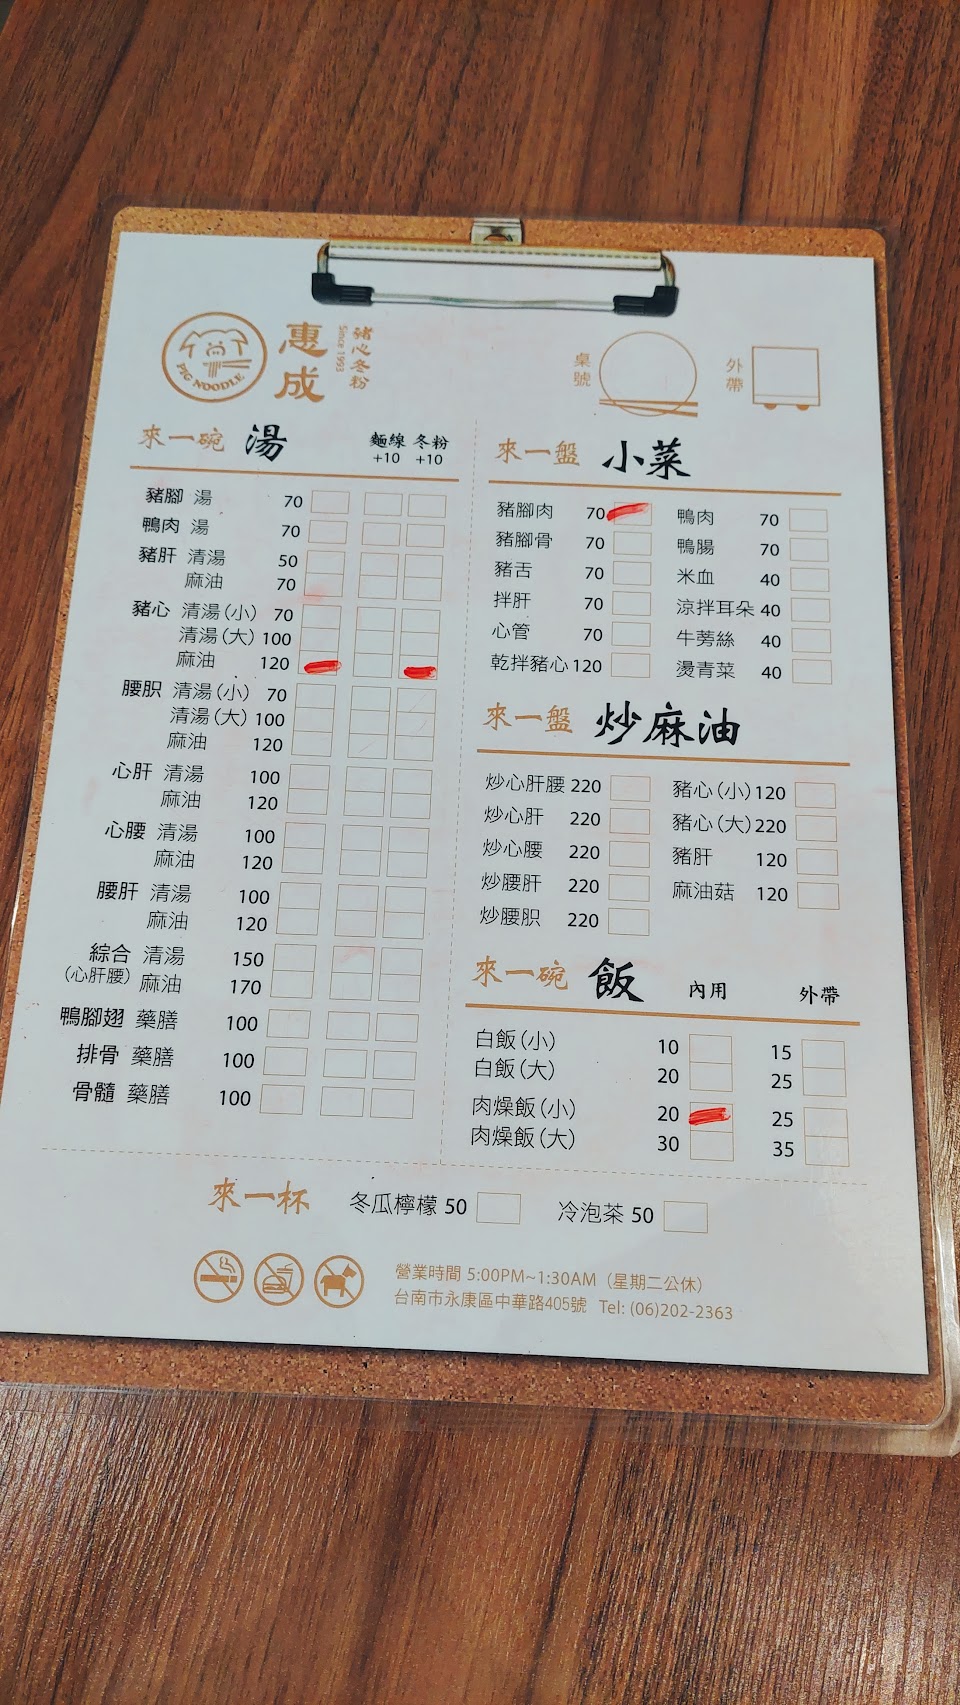 PIG NOODLE
惠成
Since 1993
豬心冬粉
桌號
外帶
來一碗 湯 麵線 冬粉
+10 +10
豬腳 湯 70
鴨肉 湯 70
豬肝 清湯 50
麻油 70
豬心 清湯(小) 70
清湯(大) 100
麻油 120
腰胑 清湯(小) 70
清湯(大) 100
麻油 120
心肝 清湯 100
麻油 120
心腰 清湯 100
麻油 120
腰肝 清湯 100
麻油 120
綜合 清湯 150
(心肝腰) 麻油 170
鴨腳翅 藥膳 100
排骨 藥膳 100
骨髓 藥膳 100
來一盤 小菜
豬腳肉 70 鴨肉 70
豬腳骨 70 鴨腸 70
豬舌 70 米血 40
拌肝 70 涼拌耳朵 40
心管 70 牛蒡絲 40
乾拌豬心 120 燙青菜 40
來一盤 炒麻油
炒心肝腰 220 豬心(小) 120
炒心肝 220 豬心(大) 220
炒心腰 220 豬肝 120
炒腰肝 220 麻油菇 120
炒腰胑 220
來一碗 飯 內用 外帶
白飯(小) 10 15
白飯(大) 20 25
肉燥飯(小) 20 25
肉燥飯(大) 30 35
來一杯 冬瓜檸檬 50 冷泡茶 50
營業時間 5:00PM~1:30AM (星期二公休)
台南市永康區中華路405號 Tel: (06)202-2363